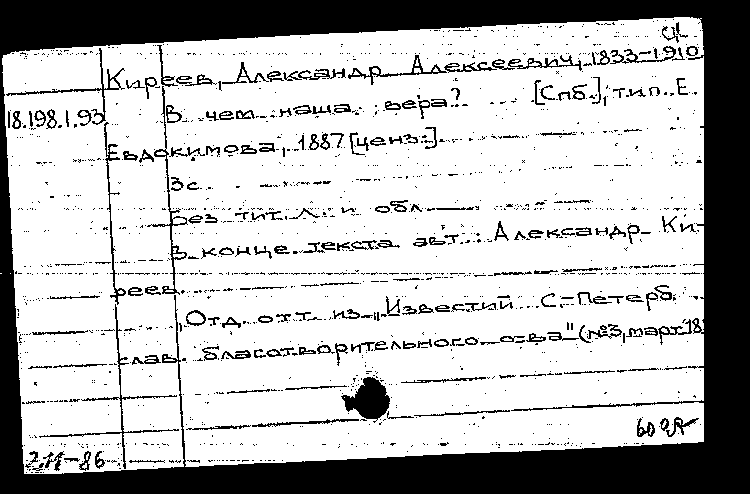 Киреев, Александр Алексеевич, 1833-1910
18.198.1.93 В чем наша вера? [Спб.], тип. Е.
Евдокимова, 1887 [ценз.]
3с.
Без тит. л. и обл.
В конце текста авт.: Александр Ки-
реев.
Отд. отт. из „Известий С.-Петерб.
слав. благотворительного о-ва" (№3, март 18
2.11-86